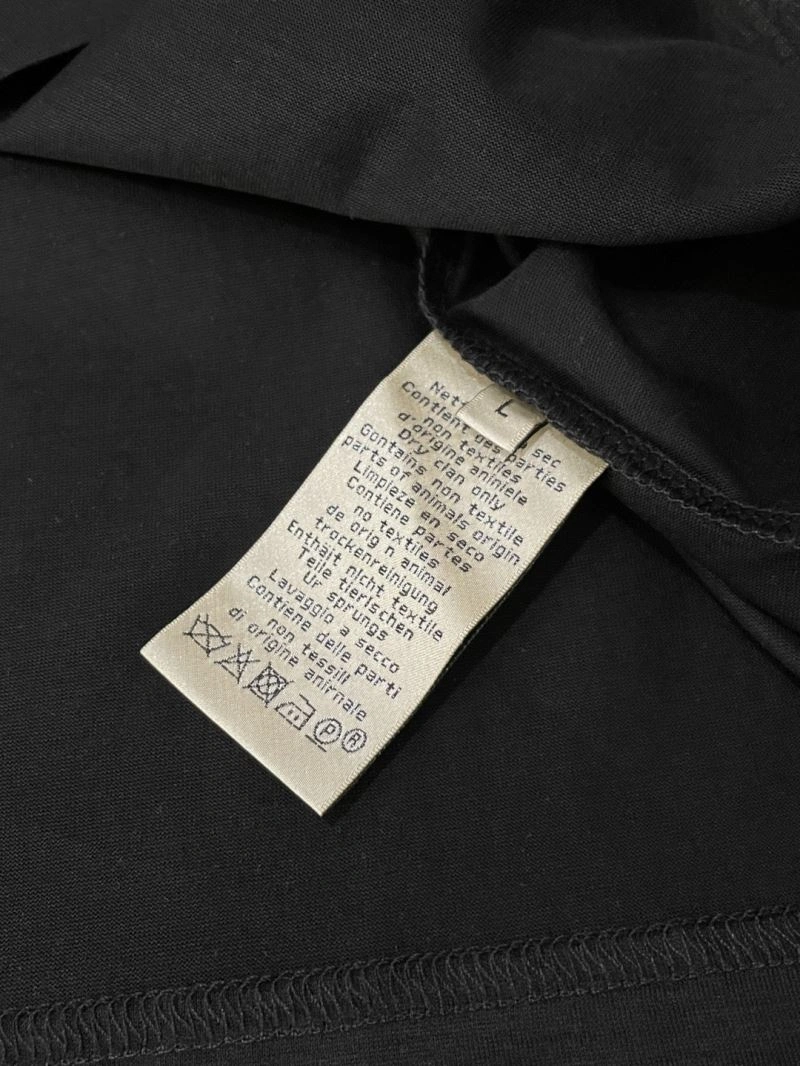 L
sec
Contient des parties
non textiles
d'origine aniniele
Dry clan only
Gontains non textile
parts of animals origin
Limpieze en seco
Contiene partes
no textiles
de orig n animal
trockenreinigung
Enthält nicht textile
Teile tierlschen
Ur sprungs
Lavaggio a secco
Contiene delle parti
non tessili
di origine anirnale
P R